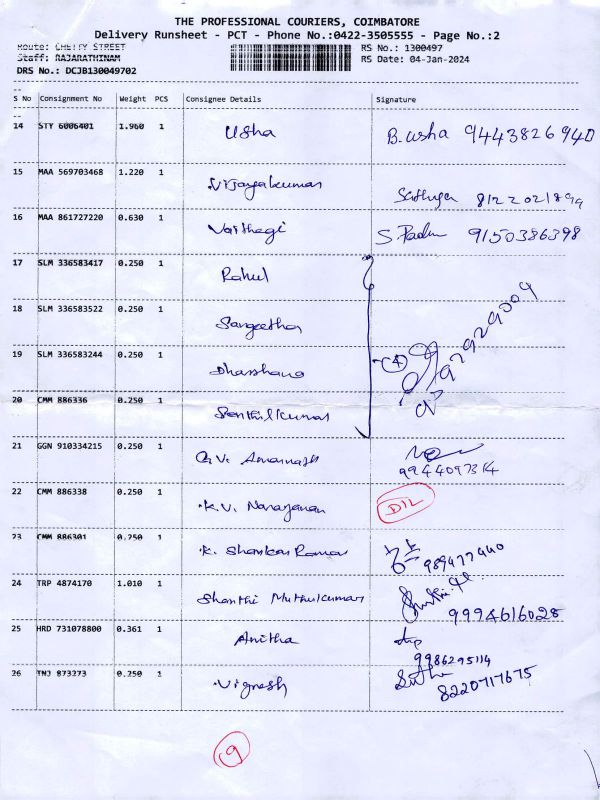 THE PROFESSIONAL COURIERS, COIMBATORE
Delivery Runsheet - PCT - Phone No.:0422-3505555 - Page No.:2
Route: CHETTY STREET RS No.: 1300497
Staff: RAJARATHINAM RS Date: 04-Jan-2024
DRS No.: DCJB130049702
S No Consignment No Weight PCS Consignee Details Signature
14 STY 6006401 1.960 1 Usha B. Usha 9443826940
15 MAA 569703468 1.220 1 Vijayakumar 8122021899
16 MAA 861727220 0.630 1 Vaithegi S. Padm 9150386398
17 SLM 336583417 0.250 1 Rahul
18 SLM 336583522 0.250 1 Sangeetha
19 SLM 336583244 0.250 1 Dharshana 4
20 CMM 886336 0.250 1 Senthilkumar
21 GGN 910334215 0.250 1 G.V. Amarnath 9944097314
22 CMM 886338 0.250 1 K.V. Narayanan D12
23 CMM 886301 0.250 1 K. Shankar Raman 989477440
24 TRP 4874170 1.010 1 Shanthi Muthukumar 9994616028
25 HRD 731078800 0.361 1 Anitha 9986295114
26 TNJ 873273 0.250 1 Vignesh 8220717675
9